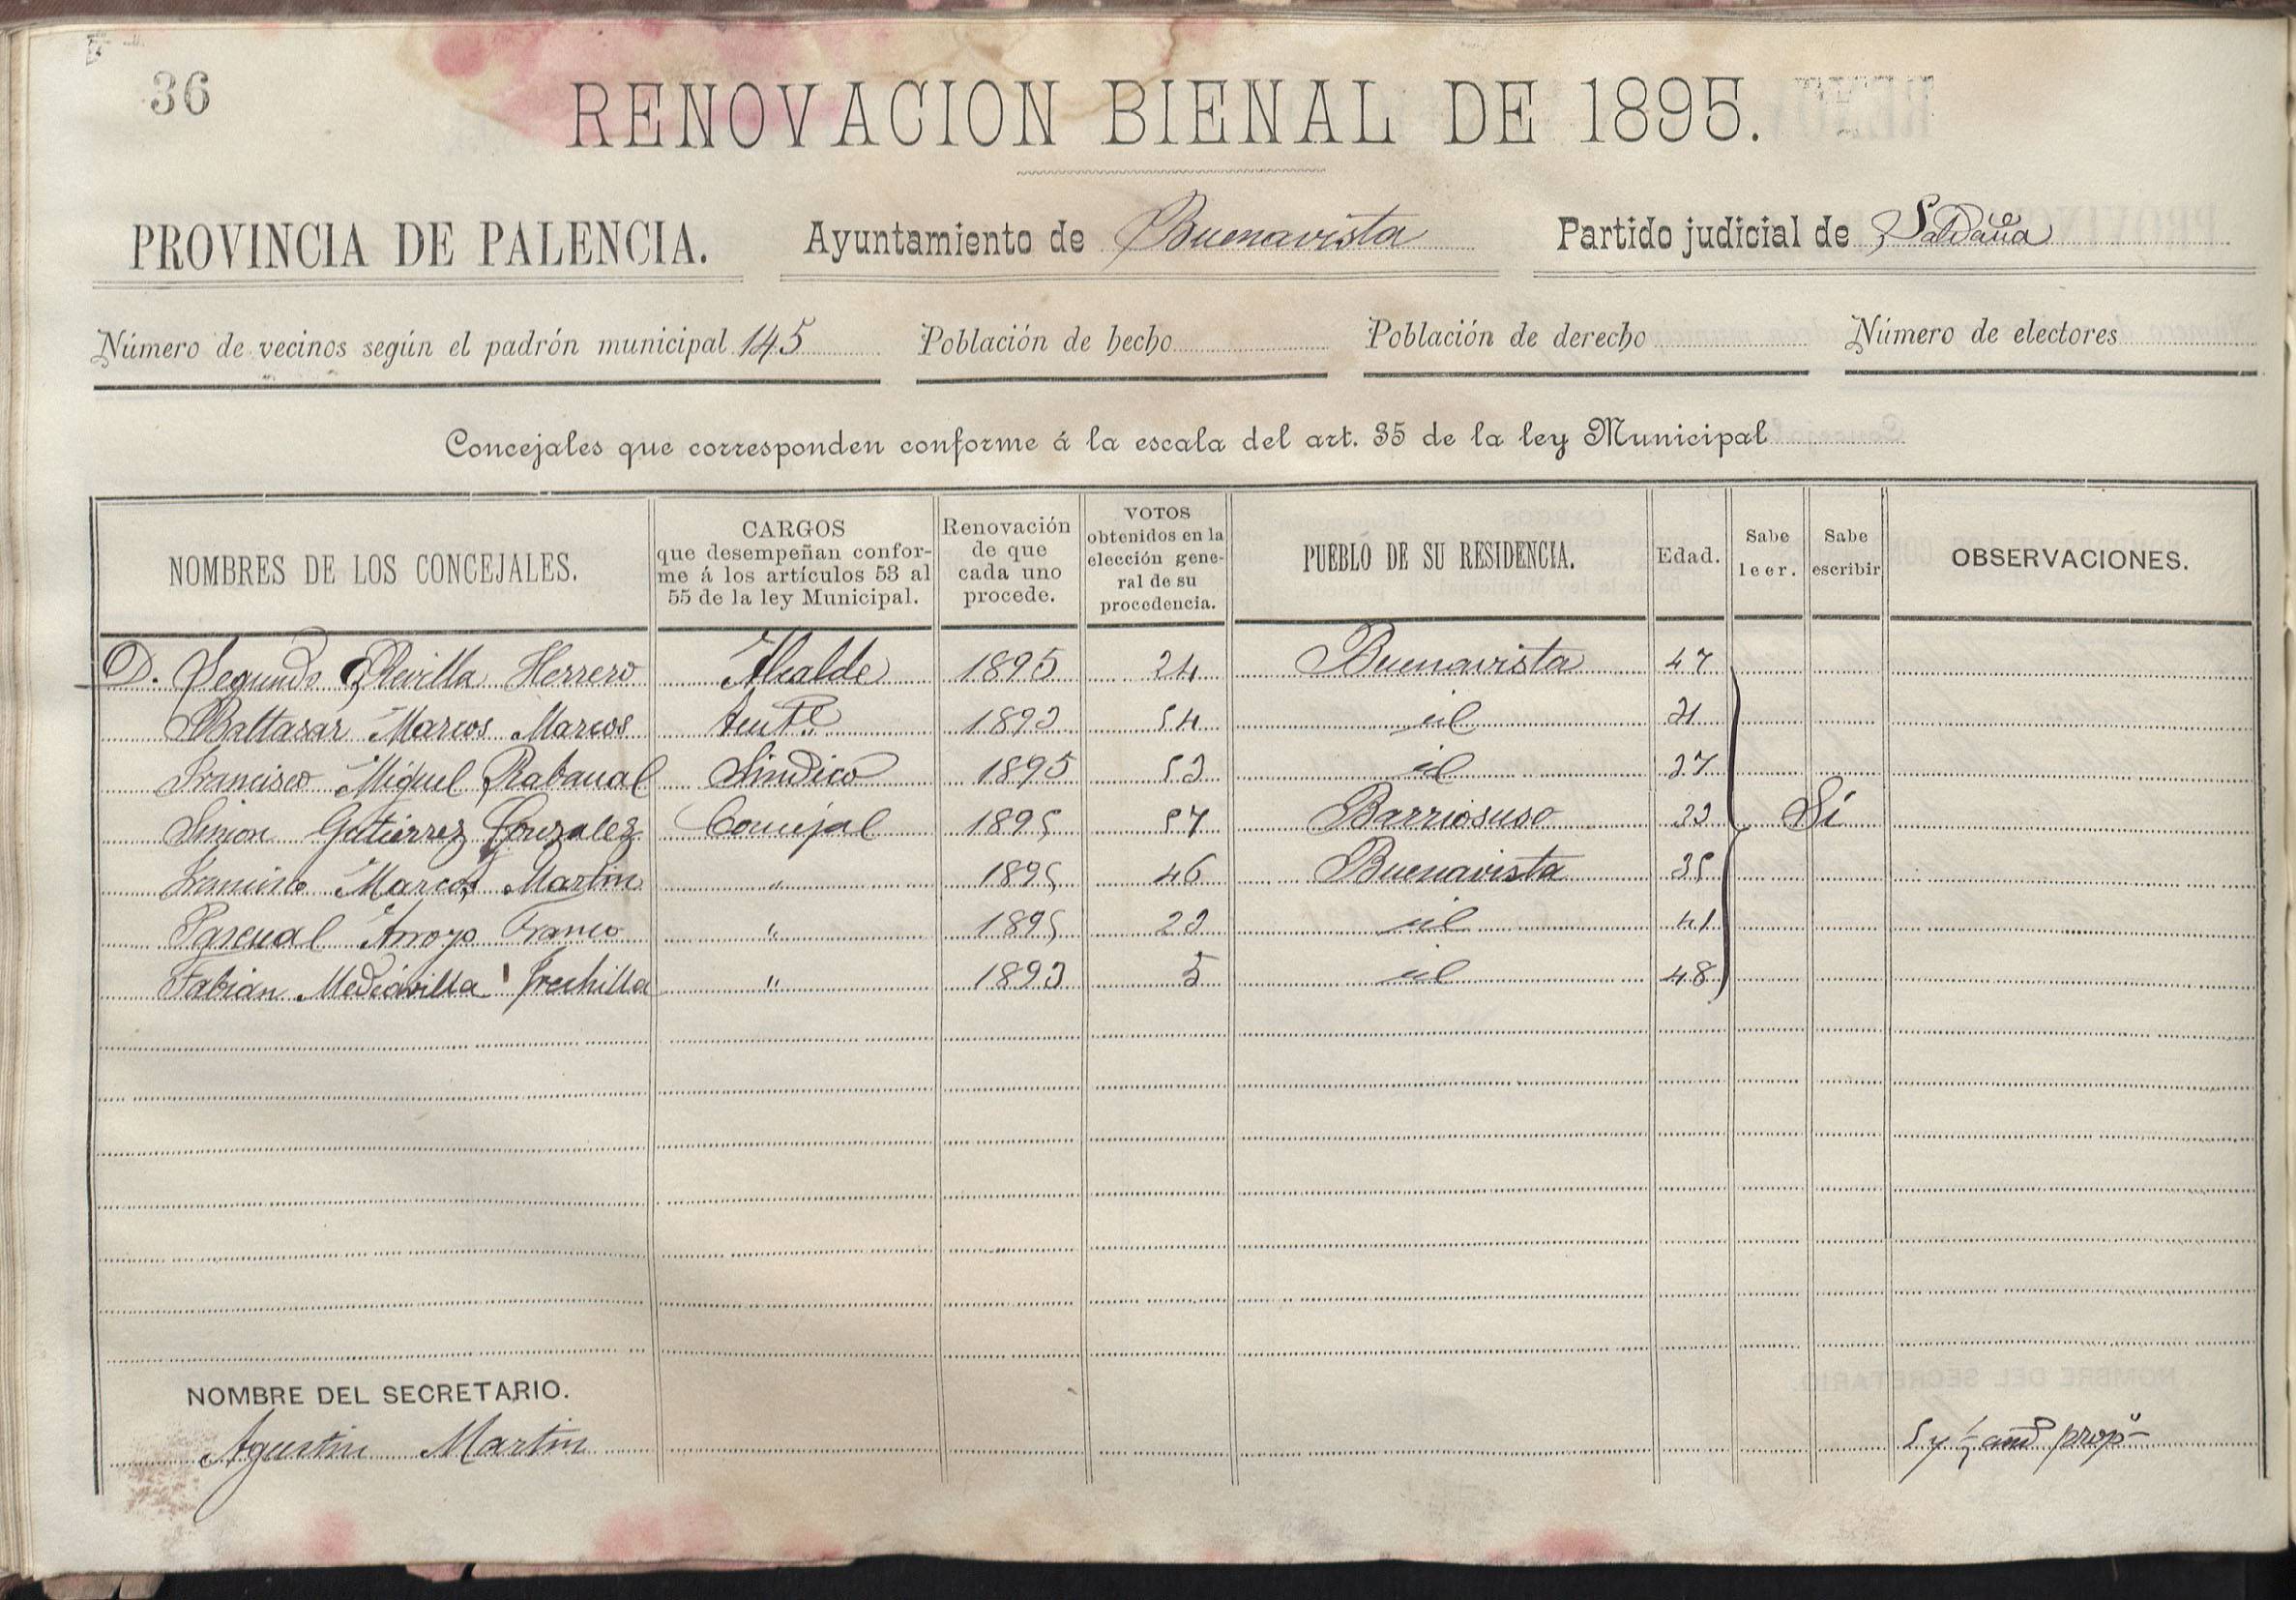 36
RENOVACION BIENAL DE 1895.
PROVINCIA DE PALENCIA. Ayuntamiento de Buenavista Partido judicial de Saldaña
Número de vecinos según el padrón municipal 145 Población de hecho Población de derecho Número de electores
Concejales que corresponden conforme á la escala del art. 35 de la ley Municipal
NOMBRES DE LOS CONCEJALES. CARGOS que desempeñan confor- me á los artículos 53 al 55 de la ley Municipal. Renovación de que cada uno procede. VOTOS obtenidos en la elección gene- ral de su procedencia. PUEBLO DE SU RESIDENCIA. Edad. Sabe leer. Sabe escribir OBSERVACIONES.
D. Segundo Revilla Herrero Alcalde 1895 24 Buenavista 47
Baltasar Marcos Marcos Tente 1893 54 id
Francisco Miguel Rabanal Sindico 1895 53 id 37
Simon Gutierrez Gonzalez Concejal 1895 57 Barriosuso 33 Sí
Francisco Marcos Martin " 1895 46 Buenavista 35
Pascual Arroyo Franco " 1895 23 id 41
Fabián Mediavilla Frechilla " 1893 5 id 48
NOMBRE DEL SECRETARIO.
Agustin Martin